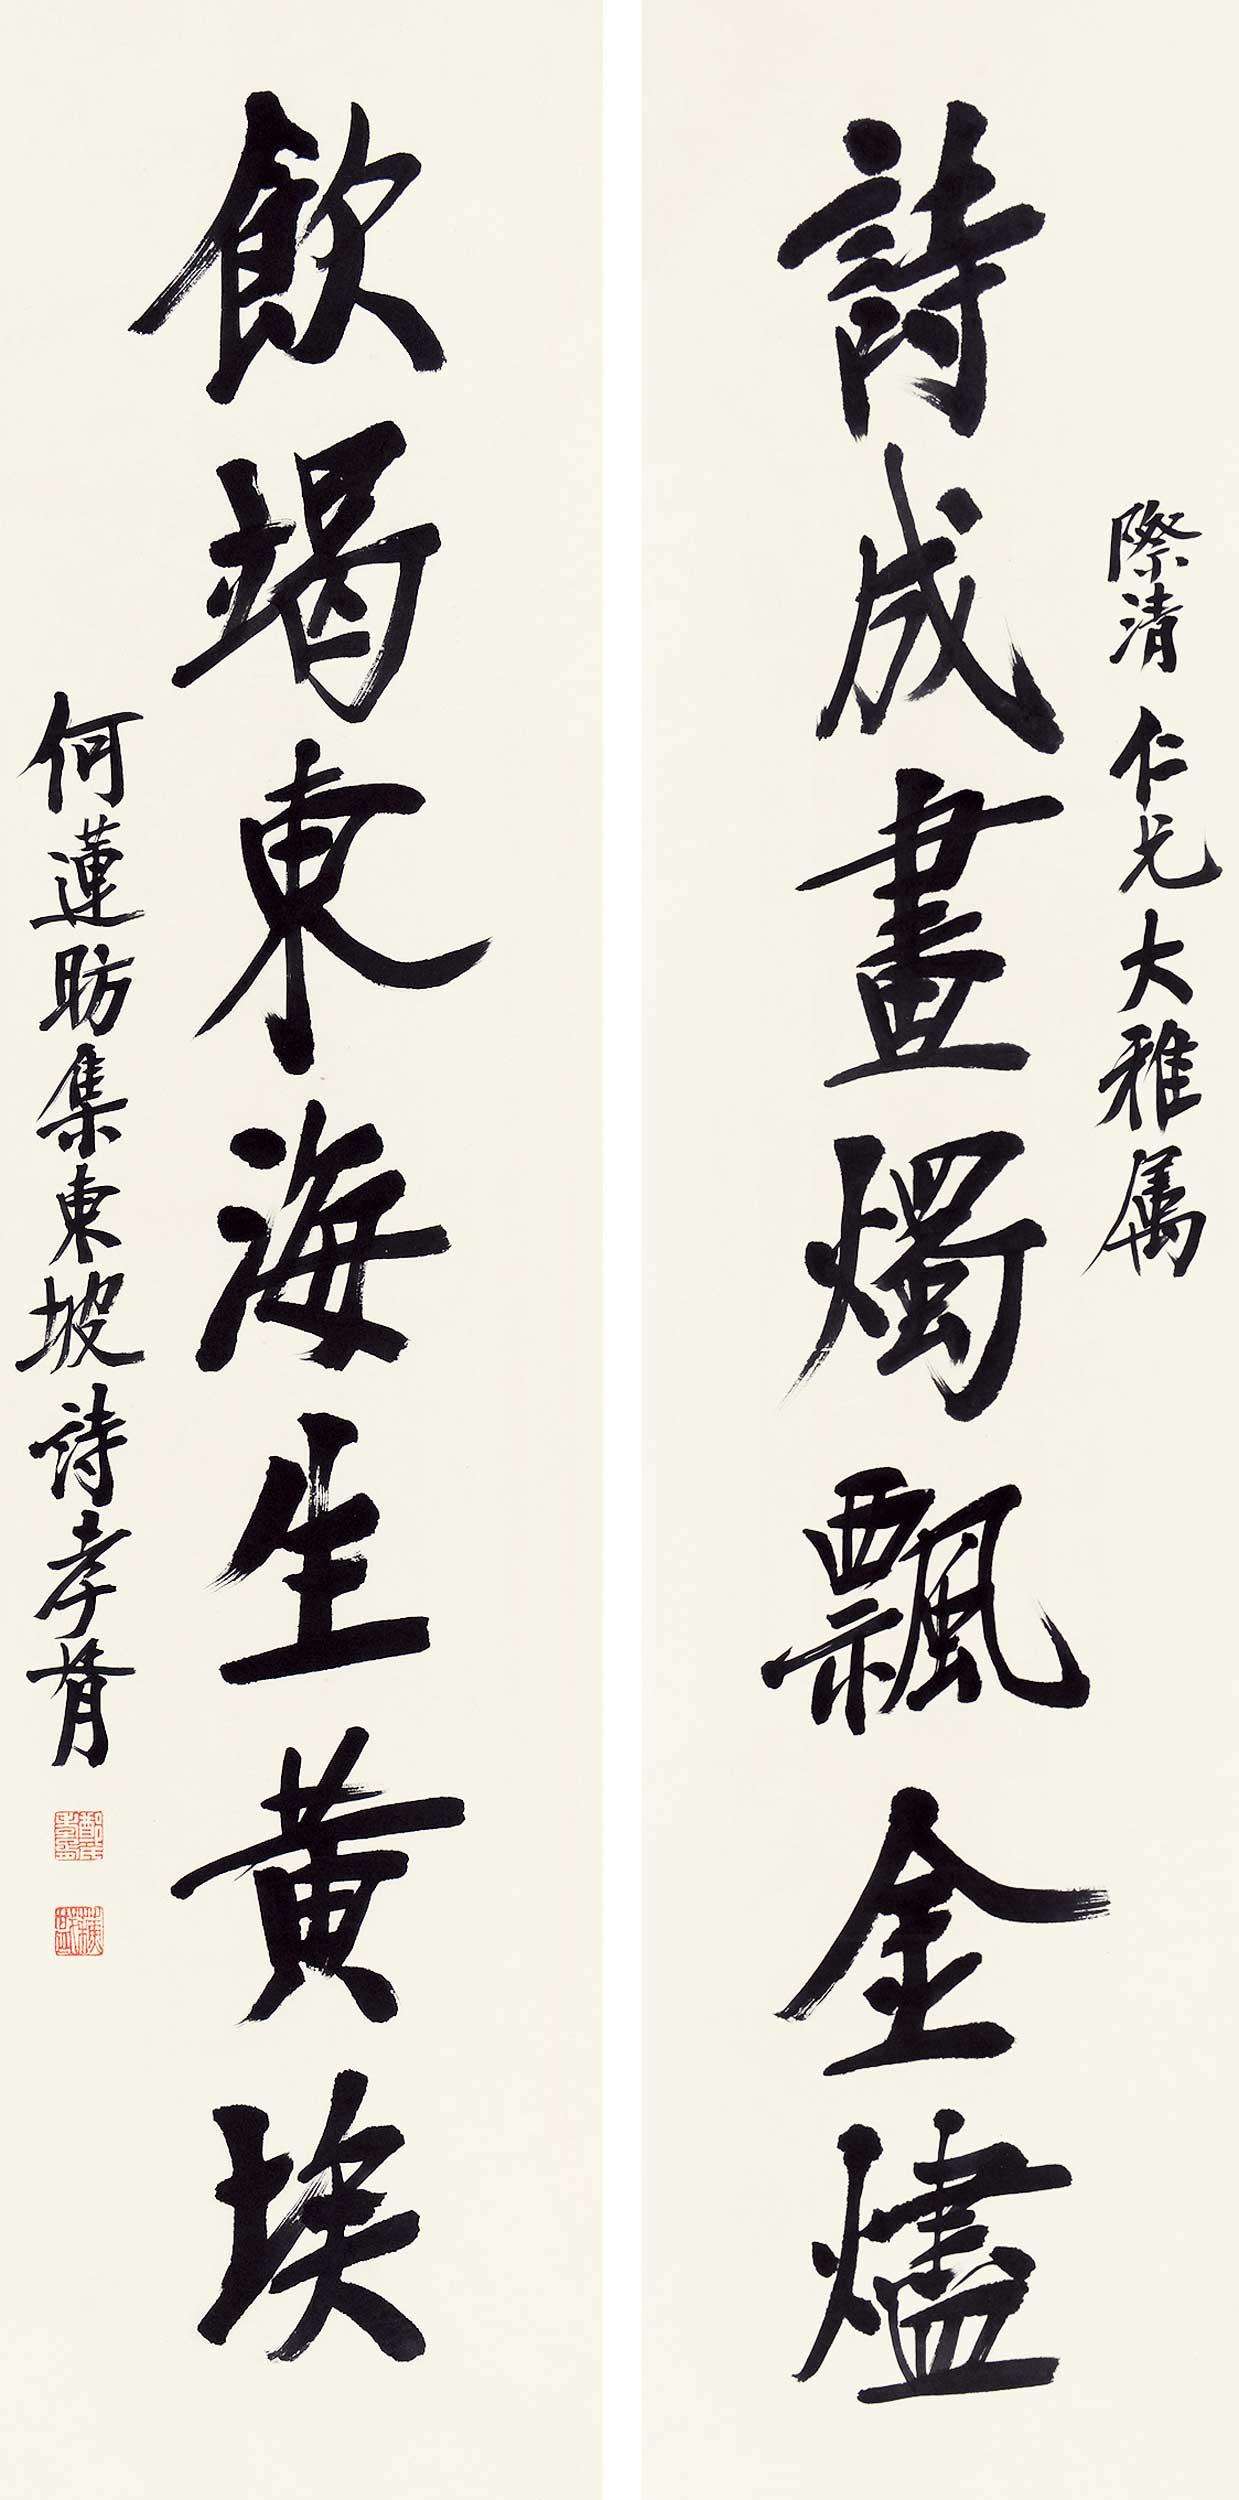 際清仁兄大雅属
詩成畫燭飄金燼
飲竭東海生黃埃
何蓮舫集東坡詩孝胥
鄭孝胥
蘇戡